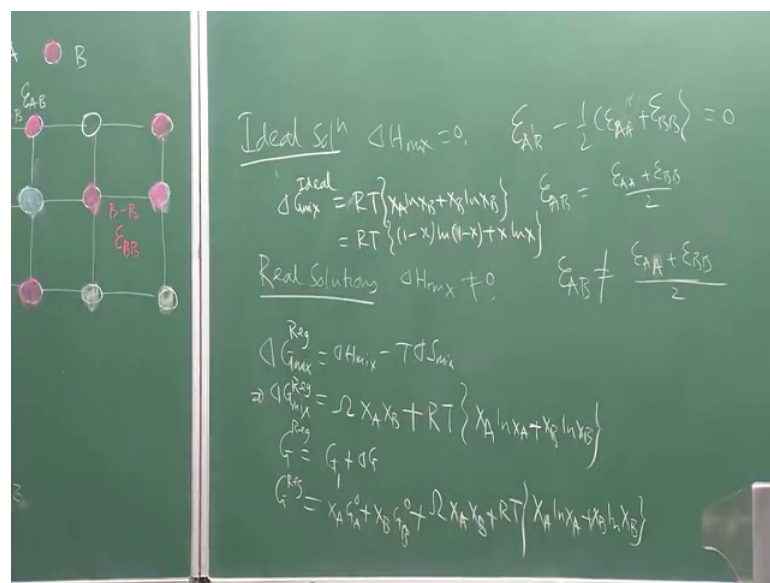 B
ε_AB
B-B
ε_BB
Ideal Solⁿ ΔH_mix = 0, ε_AB - 1/2 (ε_AA + ε_BB} = 0
ΔG_mix^Ideal = RT{x_A ln x_B + x_B ln x_B} ε_AB = (ε_AA + ε_BB)/2
= RT{(1-x) ln(1-x) + x ln x}
Real Solutions ΔH_mix ≠ 0, ε_AB ≠ (ε_AA + ε_BB)/2
ΔG_mix^Reg = ΔH_mix - TΔS_mix
⇒ ΔG_mix^Reg = Ω x_A x_B + RT{x_A ln x_A + x_B ln x_B}
G^Reg = G_1 + ΔG
G^Reg = x_A G_A^0 + x_B G_B^0 + Ω x_A x_B + RT{x_A ln x_A + x_B ln x_B}